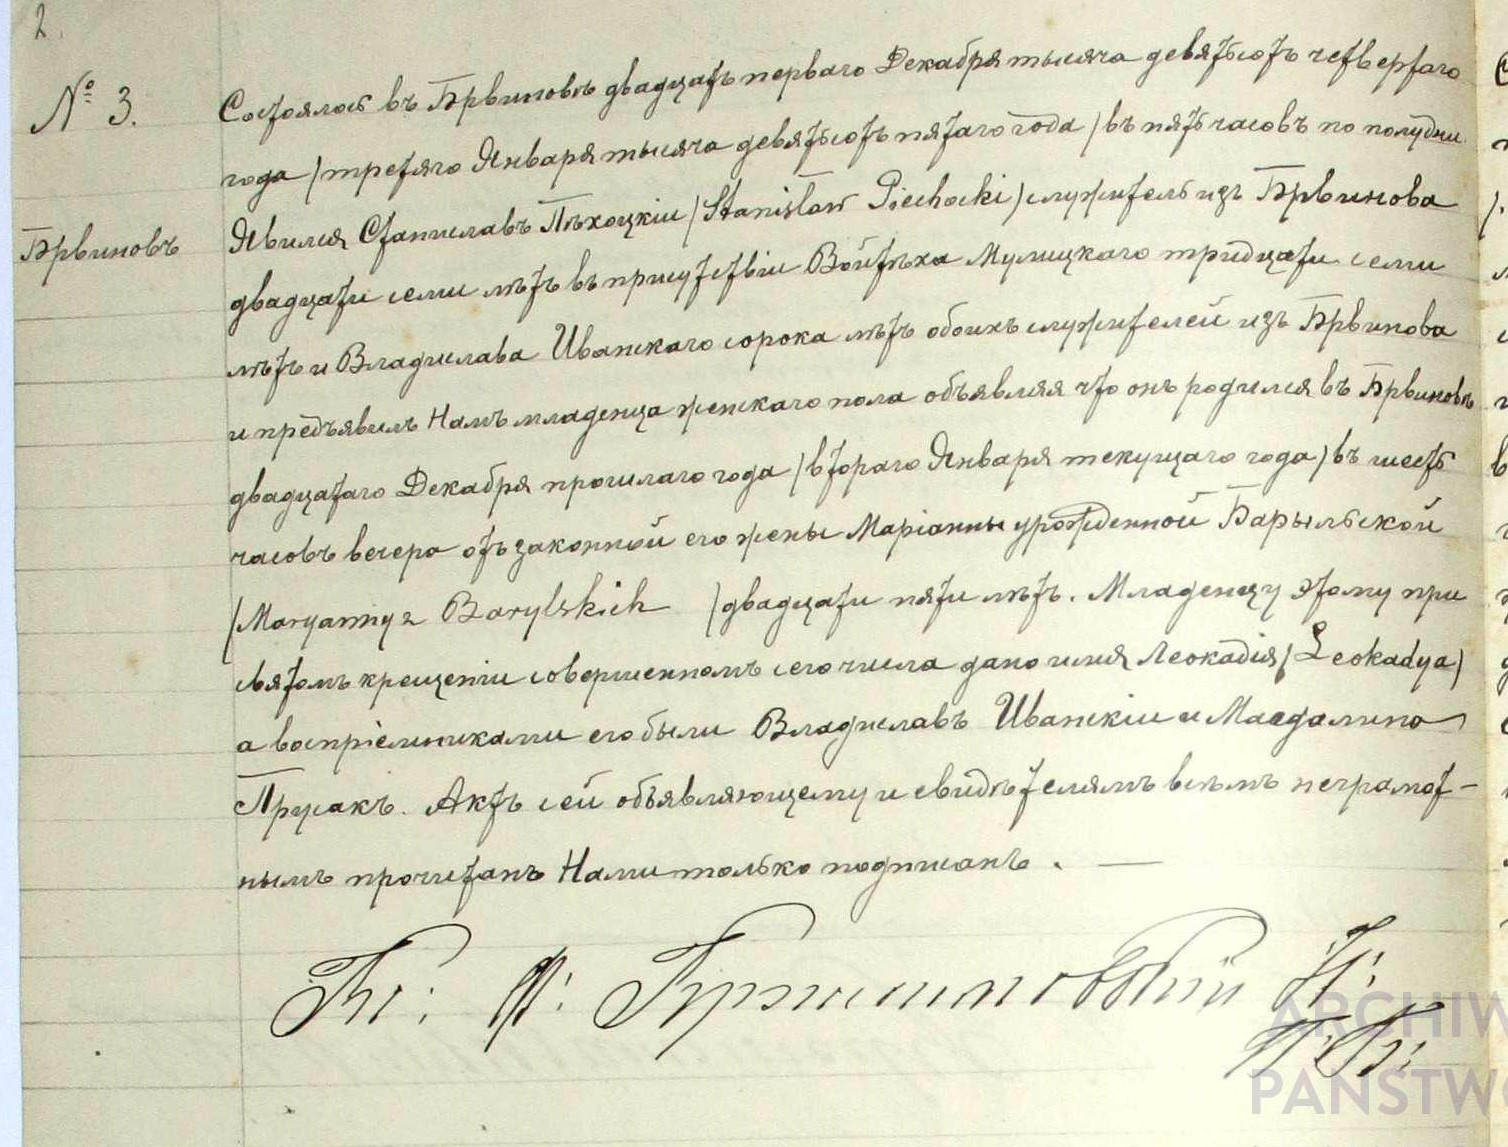 2.
№ 3.
Брвиновъ
Состоялось въ Брвиновѣ двадцать перваго Декабря тысяча девятьсотъ четвертаго
года /третяго Января тысяча девятьсотъ пятаго года/ въ пять часовъ по полудни.
Явился Станиславъ Пѣхоцкій /Stanisław Piechocki/ служитель изъ Брвинова
двадцати семи лѣтъ въ присутствіи Войтѣха Мулицкаго тридцати семи
лѣтъ и Владислава Иванскаго сорока лѣтъ обоихъ служителей изъ Брвинова
и предъявилъ Намъ младенца женскаго пола объявляя что онъ родился въ Брвиновѣ
двадцатаго Декабря прошлаго года /втораго Января текущаго года/ въ шесть
часовъ вечера отъ законной его жены Маріанны урожденной Барыльской
/Maryanny z Barylskich /двадцати пяти лѣтъ. Младенцу этому при
святомъ крещеніи совершенномъ сего числа дано имя Леокадія /Leokadya/
а воспріемниками его были Владиславъ Иванскій и Магдалина
Прусакъ. Актъ сей объявляющему и свидѣтелямъ всѣмъ неграмот-
нымъ прочитанъ Нами только подписанъ. —
Кс: Ф:
ARCHIW
PAŃSTWO